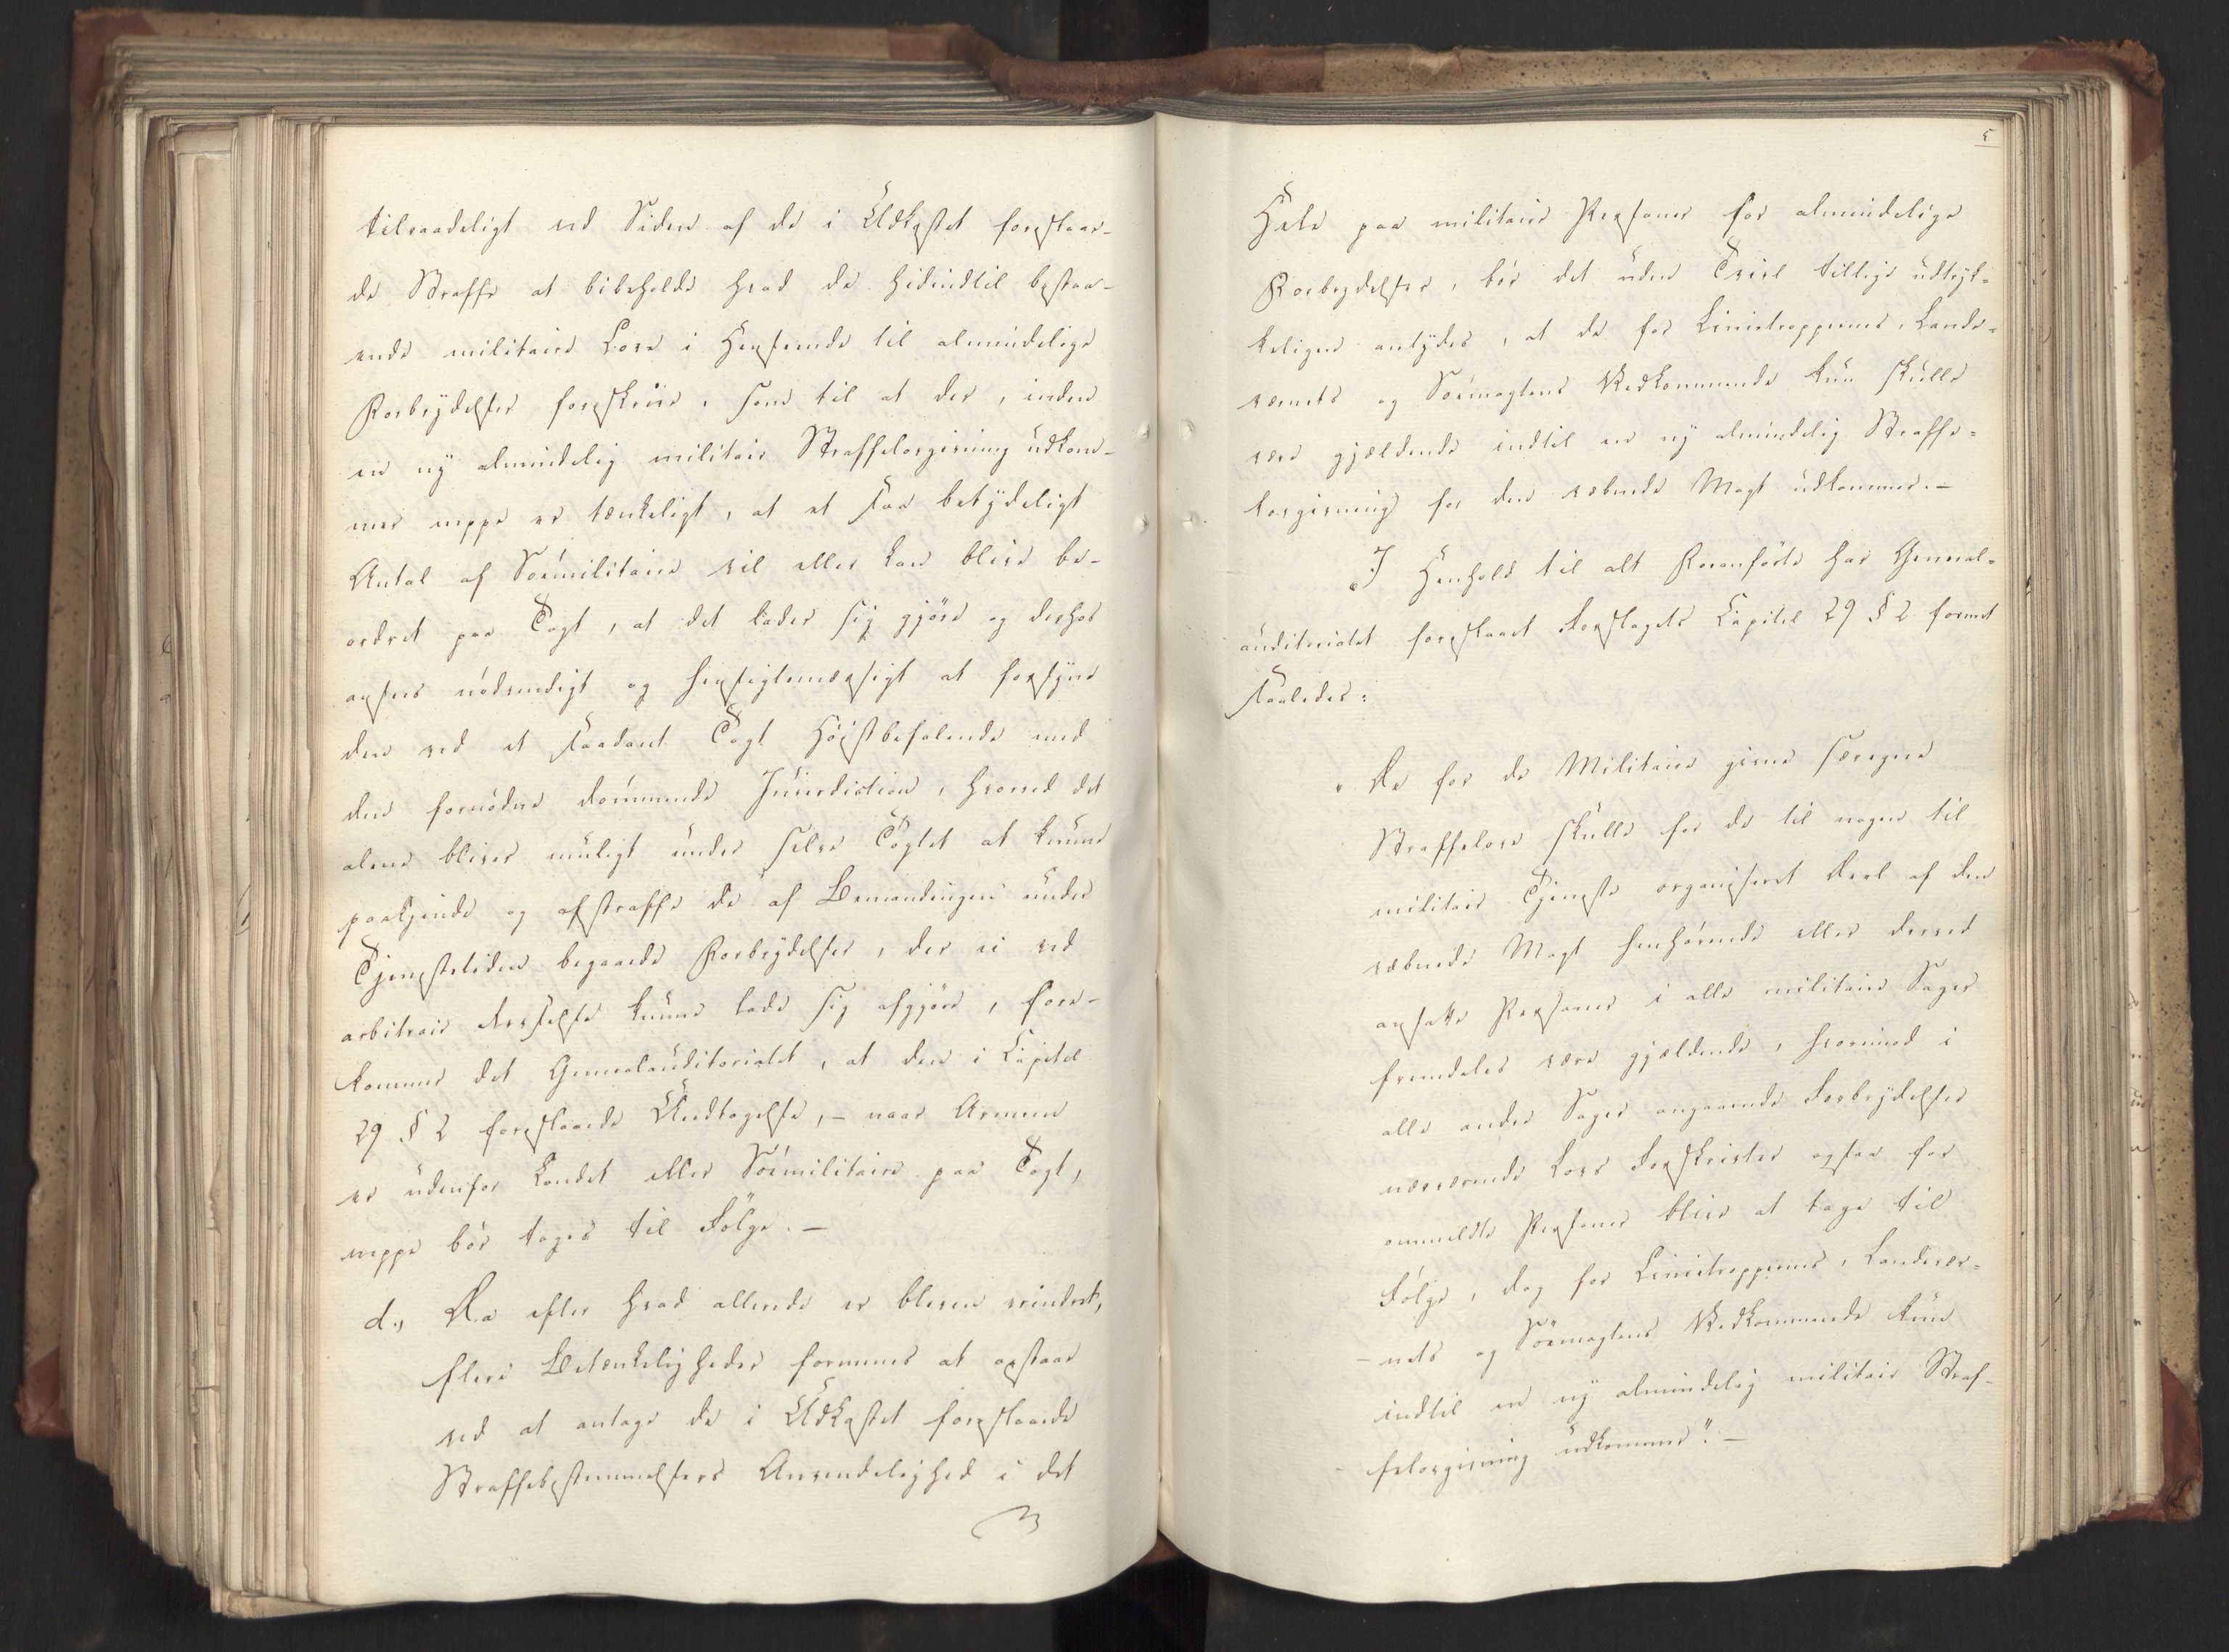 tilraadeligt ved Siden af de i Udkastet foreslaae-
de Straffe at bibeholde hvad de hidindtil bestaa-
ende militaire Love i Henseende til almindelige
Forbrydelser foreskrive, samt til at der, inden
en ny almindelig militair Straffelovgivning udkom-
mer neppe er tænkeligt, at et saa betydeligt
Antal af Sømilitaire vil eller kan blive be-
ordret paa Togt, at det lader sig gjøre og derhos
ansees nødvendigt og hensigtsmæssigt at forsyne
den ved et saadant Togt Høistbefalende med
den fornødne dømmende Jurisdiction, hvorved det
alene bliver muligt under selve Togtet at kunne
paakjende og afstraffe de af Bemandingen under
Tjenestetiden begaaede Forbrydelser, der ei ved
arbitrair Revselse kunne lade sig afgjøre, fore-
kommer det Generalauditoriatet, at den i Capitel
29 § 2 foreslaaede Undtagelse, - naar Armeen
er udenfor Landet eller Sømilitaire paa Togt,
neppe bør tages til Følge. -
d., Da efter hvad allerede er bleven erindret,
flere Betænkeligheder formenes at opstaae
ved at antage de i Udkastet foreslaaede
Straffebestemmelsers Anvendelighed i det
5
Hele paa militaire Personer for almindelige
Forbrydelser, bør det uden Tvivl tillige udtryk-
keligen antydes, at de for Linietroppernes, Land-
værnets og Sømagtens Vedkommende kun skulle
være gjældende indtil en ny almindelig Straffe-
lovgivning for den væbnede Magt udkommer. -
I Henhold til alt Foranførte har General-
auditoriatet foreslaaet Forslagets Capitel 29 § 2 formet
saaledes:
"De for de Militaire givne særegne
Straffelove skulle for de til nogen til
militair Tjeneste organiseret Deel af den
væbnede Magt henhørende eller derved
ansatte Personer i alle militaire Sager
fremdeles være gjældende, hvorimod i
alle andre Sager angaaende Forbrydelser
nærværende Lovs Forskrifter ogsaa for
ommeldte Personer blive at tage til
Følge, dog for Linietroppernes, Landvær-
nets og Sømagtens Vedkommende kun
indtil en ny almindelig militair Straf-
felovgivning udkommer". -